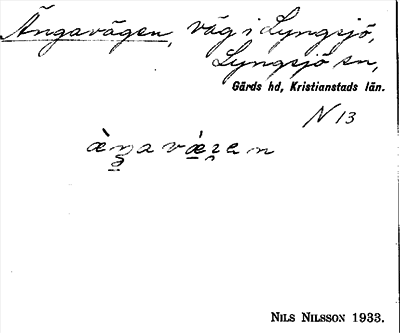 Ängavägen, väg i Lyngsjö,
Lyngsjö sn,
Gärds hd, Kristianstads län.
N 13
NILS NILSSON 1933.